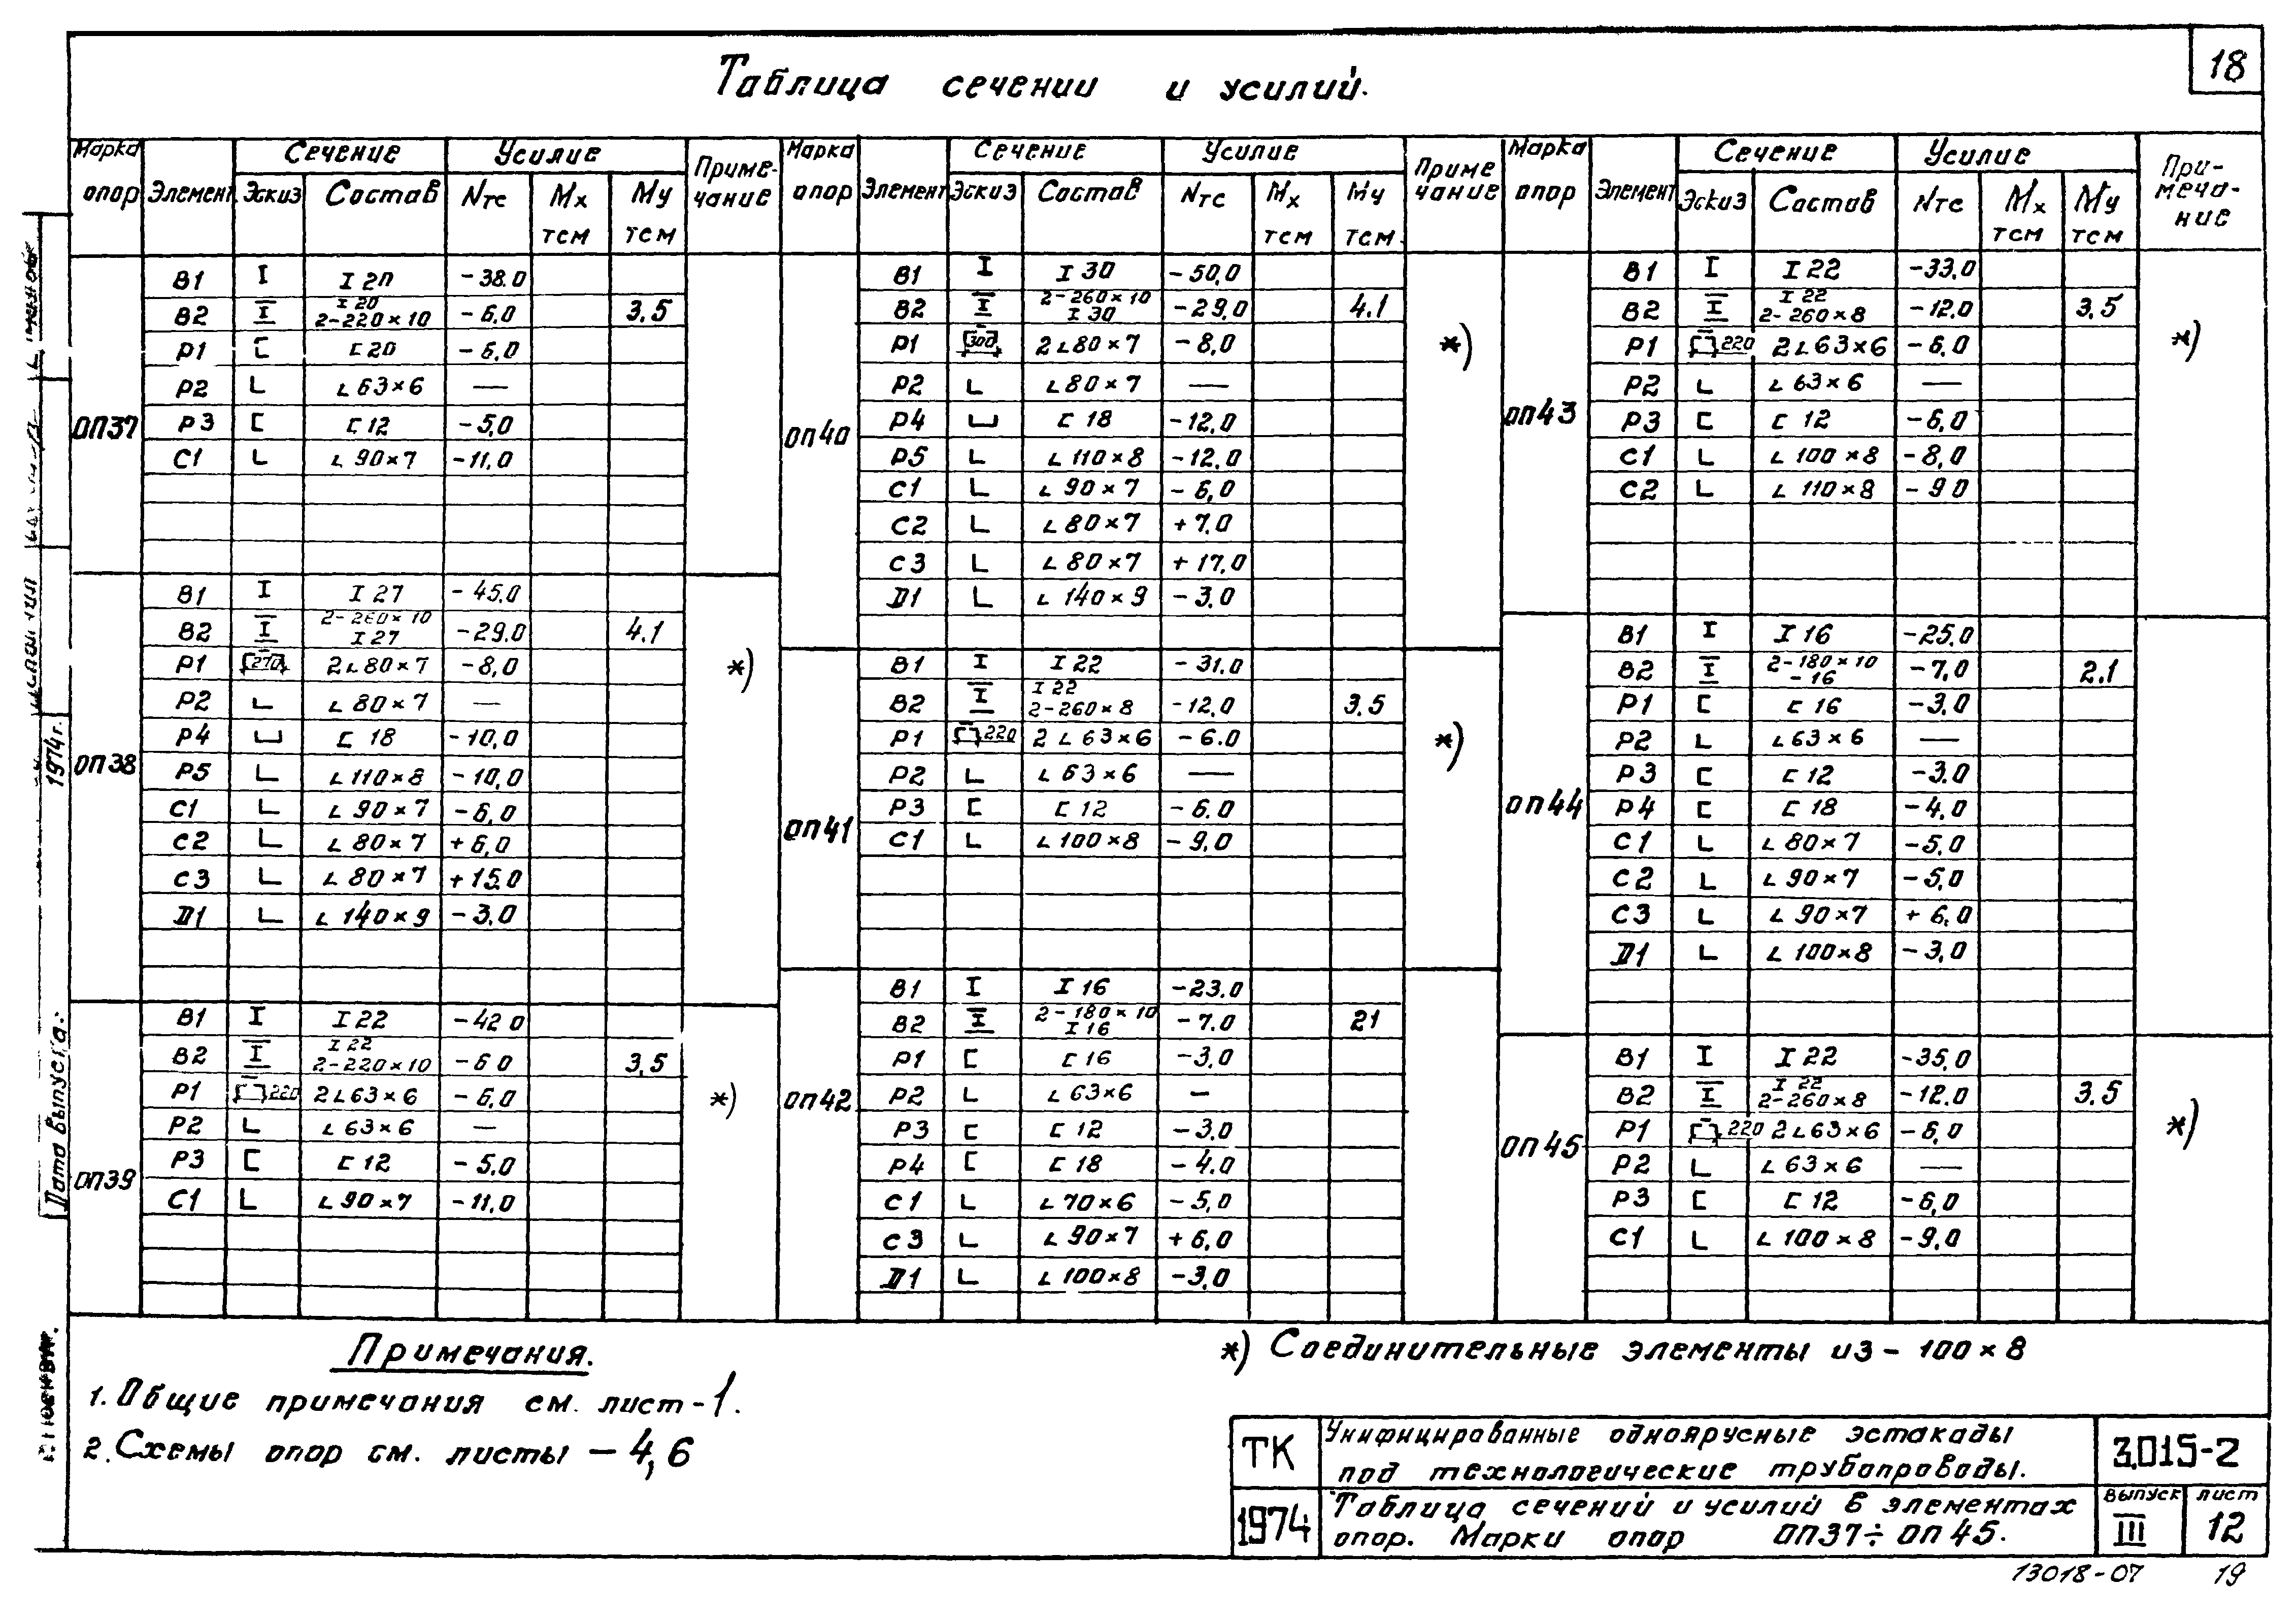 18
Таблица сечении и усилий.
Марка опор Элемент Сечение Эскиз Состав Усилие Nтс Mx тсм My тсм Примечание
ОП37
В1 I I 20 -38.0
В2 I I 20 2-220×10 -6,0 3.5
Р1 [ [ 20 -6,0
Р2 L L 63×6 —
Р3 [ [ 12 -5,0
С1 L L 90×7 -11,0
ОП38 *)
В1 I I 27 -45.0
В2 I 2-260×10 I 27 -29.0 4.1
Р1 270 2L80×7 -8,0
Р2 L L 80×7 —
Р4 [ 18 -10,0
Р5 L L 110×8 -10,0
С1 L L 90×7 -6,0
С2 L L 80×7 +6,0
С3 L L 80×7 +15.0
D1 L L 140×9 -3.0
ОП39 *)
В1 I I 22 -42 0
В2 I I 22 2-220×10 -6 0 3.5
Р1 220 2L63×6 -6,0
Р2 L L 63×6 —
Р3 [ [ 12 -5.0
С1 L L 90×7 -11,0
Марка опор Элемент Сечение Эскиз Состав Усилие Nтс Mx тсм My тсм Примечание
ОП40 *)
В1 I I 30 -50,0
В2 I 2-260×10 I 30 -29,0 4.1
Р1 300 2L80×7 -8,0
Р2 L L 80×7 —
Р4 [ 18 -12,0
Р5 L L 110×8 -12.0
С1 L L 90×7 -6,0
С2 L L 80×7 +7.0
С3 L L 80×7 +17.0
D1 L L 140×9 -3.0
ОП41 *)
В1 I I 22 -31.0
В2 I I 22 2-260×8 -12,0 3.5
Р1 220 2 L 63×6 -6.0
Р2 L L 63×6 —
Р3 [ [ 12 -6.0
С1 L L 100×8 -9,0
ОП42
В1 I I 16 -23.0
В2 I 2-180×10 I 16 -7.0 21
Р1 [ [ 16 -3,0
Р2 L L 63×6 —
Р3 [ [ 12 -3.0
Р4 [ [ 18 -4.0
С1 L L 70×6 -5,0
С3 L L 90×7 +6,0
D1 L L 100×8 -3,0
Марка опор Элемент Сечение Эскиз Состав Усилие Nтс Mx тсм My тсм При-меча-ние
ОП43 *)
В1 I I 22 -33.0
В2 I I 22 2-260×8 -12.0 3.5
Р1 220 2L63×6 -6.0
Р2 L L 63×6 —
Р3 [ [ 12 -6,0
С1 L L 100×8 -8,0
С2 L L 110×8 -9 0
ОП44
В1 I I 16 -25.0
В2 I 2-180×10 -16 -7,0 2.1
Р1 [ [ 16 -3.0
Р2 L L 63×6 —
Р3 [ [ 12 -3.0
Р4 [ [ 18 -4.0
С1 L L 80×7 -5,0
С2 L L 90×7 -5,0
С3 L L 90×7 +6,0
D1 L L 100×8 -3,0
ОП45 *)
В1 I I 22 -35,0
В2 I I 22 2-260×8 -12.0 3.5
Р1 220 2L63×6 -6,0
Р2 L L 63×6 —
Р3 [ [ 12 -6,0
С1 L L 100×8 -9,0
Примечания.
1. Общие примечания см. лист-1.
2. Схемы опор см. листы -4,6
*) Соединительные элементы из - 100×8
ТК
1974
Унифицированные одноярусные эстакады
под технологические трубопроводы.
Таблица сечений и усилий в элементах
опор. Марки опор ОП37÷ОП45.
3.015-2
Выпуск III
Лист 12
13018-07 19
Дата выпуска:
1974г.